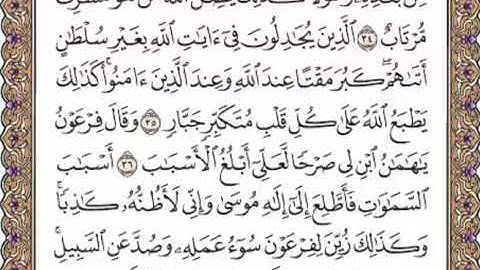 مُّرْتَابٌ ٣٤ ٱلَّذِينَ يُجَٰدِلُونَ فِىٓ ءَايَٰتِ ٱللَّهِ بِغَيْرِ سُلْطَٰنٍ
أَتَىٰهُمْ ۖ كَبُرَ مَقْتًا عِندَ ٱللَّهِ وَعِندَ ٱلَّذِينَ ءَامَنُوا۟ ۚ كَذَٰلِكَ
يَطْبَعُ ٱللَّهُ عَلَىٰ كُلِّ قَلْبِ مُتَكَبِّرٍ جَبَّارٍ ٣٥ وَقَالَ فِرْعَوْنُ
يَٰهَٰمَٰنُ ٱبْنِ لِى صَرْحًا لَّعَلِّىٓ أَبْلُغُ ٱلْأَسْبَٰبَ ٣٦ أَسْبَٰبَ
ٱلسَّمَٰوَٰتِ فَأَطَّلِعَ إِلَىٰٓ إِلَٰهِ مُوسَىٰ وَإِنِّى لَأَظُنُّهُۥ كَٰذِبًا ۚ
وَكَذَٰلِكَ زُيِّنَ لِفِرْعَوْنَ سُوٓءُ عَمَلِهِۦ وَصُدَّ عَنِ ٱلسَّبِيلِ ۚ